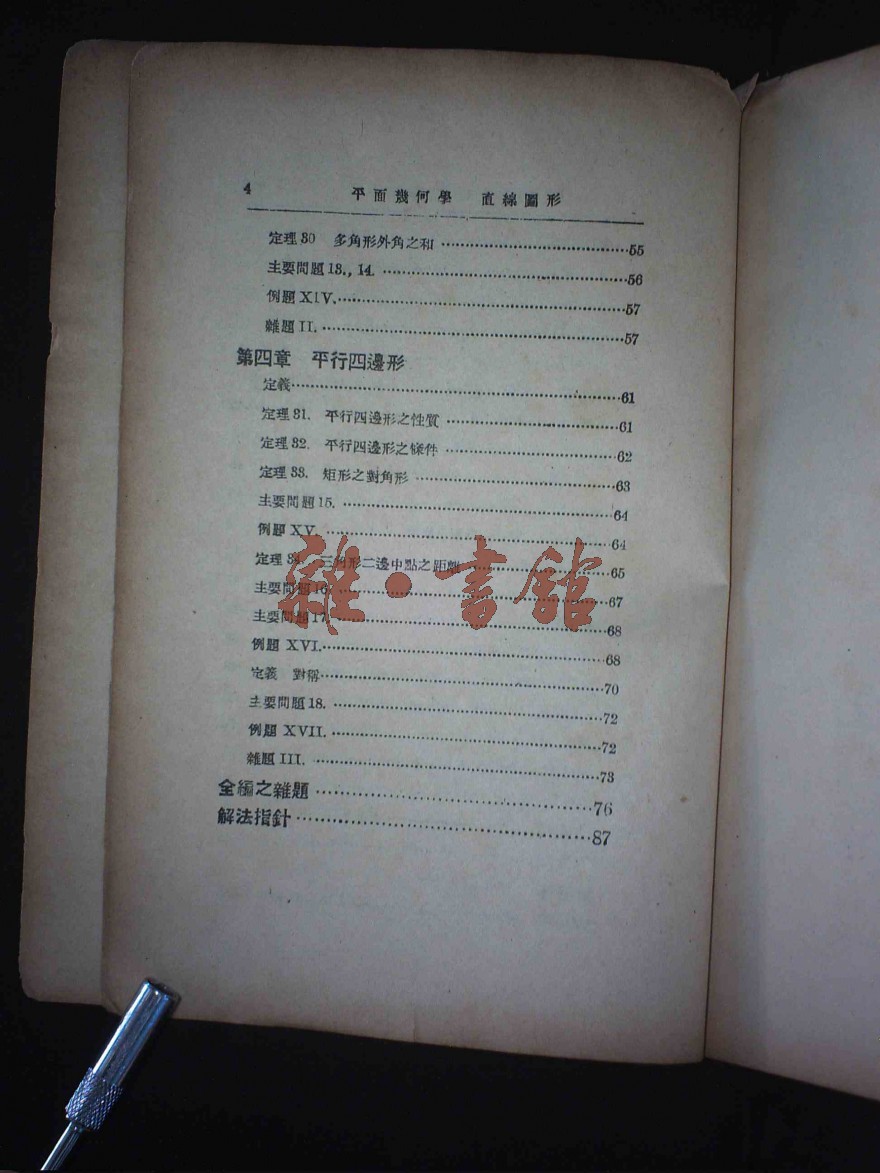 4 平面幾何學 直線圖形
定理30 多角形外角之和 ………………55
主要問題13., 14. ………………56
例題 XIV.………………57
雜題 II. ………………57
第四章 平行四邊形
定義………………61
定理31. 平行四邊形之性質 ………………61
定理32. 平行四邊形之條件 ………………62
定理33. 矩形之對角形 ………………63
主要問題15. ………………64
例題 XV. ………………64
定理34. 三角形二邊中點之距離 ………………65
主要問題16. ………………67
主要問題17. ………………68
例題 XVI.………………68
定義 對稱………………70
主要問題18. ………………72
例題 XVII. ………………72
雜題 III. ………………73
全編之雜題 ………………76
解法指針………………87
雜·書館